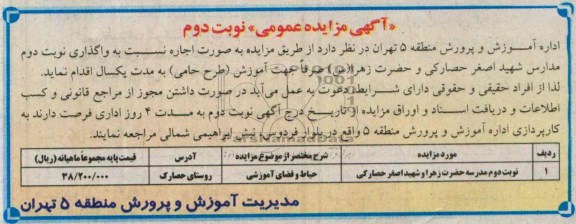 «آگهی مزایده عمومی» نوبت دوم
اداره آموزش و پرورش منطقه ۵ تهران در نظر دارد از طریق مزایده به صورت اجاره نسبت به واگذاری نوبت دوم
مدارس شهید اصغر حصارکی و حضرت زهرا(س) صرفاً جهت آموزش (طرح حامی) به مدت یکسال اقدام نماید.
لذا از افراد حقیقی و حقوقی دارای شرایط دعوت به عمل می‌آید در صورت داشتن مجوز از مراجع قانونی و کسب
اطلاعات و دریافت اسناد و اوراق مزایده از تاریخ درج آگهی نوبت دوم به مدت ۴ روز اداری فرصت دارند به
کارپردازی اداره آموزش و پرورش منطقه ۵ واقع در بلوار فردوس، نبش ابراهیمی شمالی مراجعه نمایند.
ردیف مورد مزایده شرح مختصر از موضوع مزایده آدرس قیمت پایه مجموعاً ماهیانه (ریال)
۱ نوبت دوم مدرسه حضرت زهرا و شهید اصغر حصارکی حیاط و فضای آموزشی روستای حصارک ۳۸/۲۰۰/۰۰۰
مدیریت آموزش و پرورش منطقه ۵ تهران